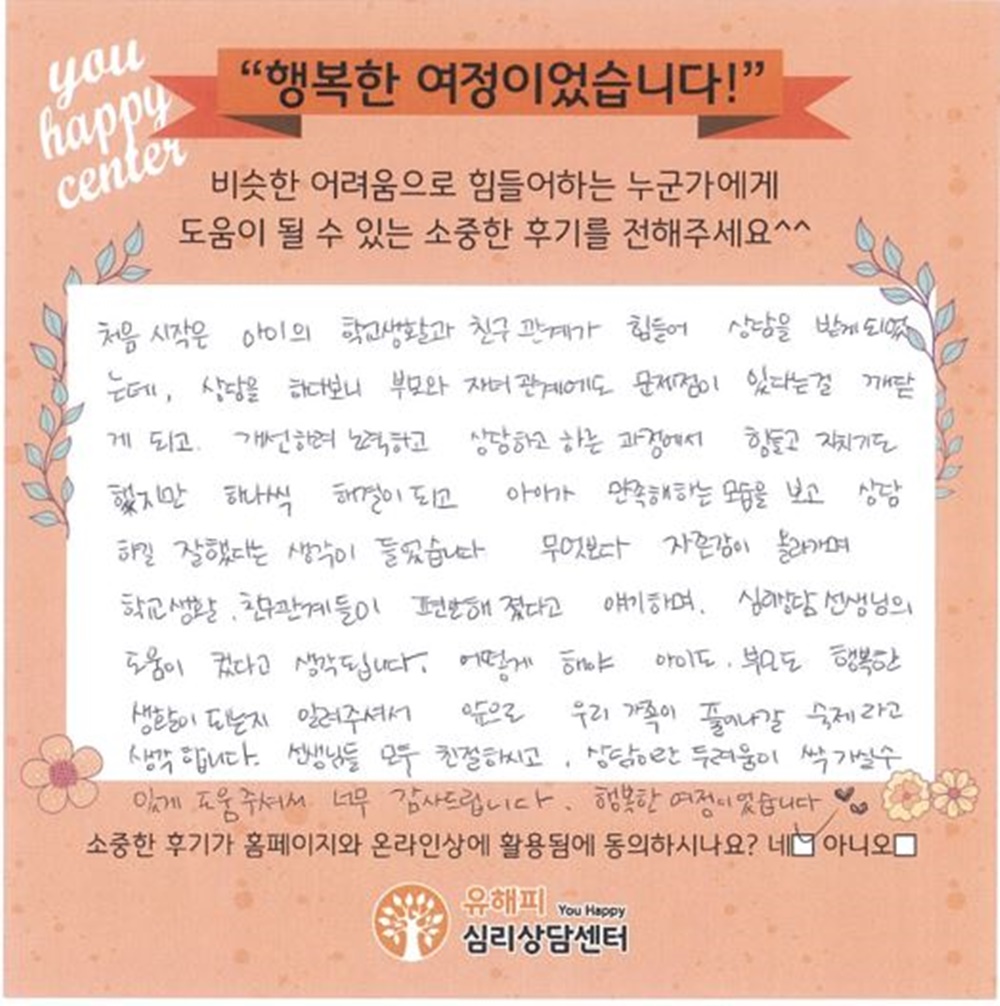 you
happy
center
“행복한 여정이었습니다!”
비슷한 어려움으로 힘들어하는 누군가에게
도움이 될 수 있는 소중한 후기를 전해주세요^^
처음 시작은 아이의 학교생활과 친구 관계가 힘들어 상담을 받게 되었
는데, 상담을 하다보니 부모와 자녀 관계에도 문제점이 있다는걸 깨닫
게 되고. 개선하려 노력하고 상담하고 하는 과정에서 힘들고 지치기도
했지만 하나씩 해결이 되고 아이가 만족해하는 모습을 보고 상담
하길 잘했다는 생각이 들었습니다 무엇보다 자존감이 올라가며
학교생활, 친구관계들이 편안해 졌다고 얘기하며. 심리상담 선생님의
도움이 컸다고 생각됩니다. 어떻게 해야 아이도, 부모도 행복한
생활이 되는지 알려주셔서 앞으로 우리 가족이 풀어나갈 숙제라고
생각합니다. 선생님들 모두 친절하시고, 상담이란 두려움이 싹 가실수
있게 도움주셔서 너무 감사드립니다. 행복한 여정이었습니다
소중한 후기가 홈페이지와 온라인상에 활용됨에 동의하시나요? 네 아니오
유해피 You Happy
심리상담센터